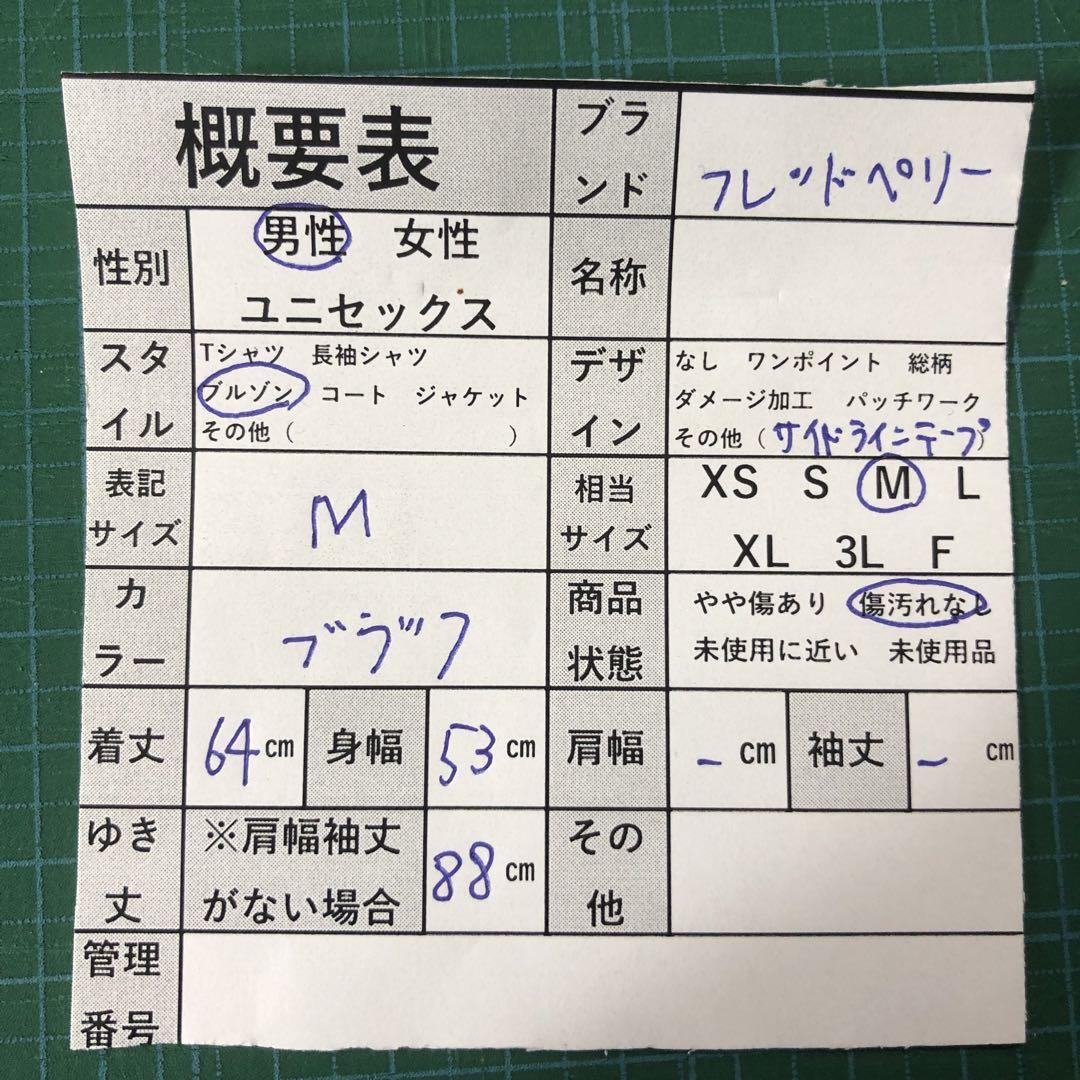 概要表
ブランド
フレッドペリー
性別
男性 女性
ユニセックス
名称
スタイル
Tシャツ 長袖シャツ
ブルゾン コート ジャケット
その他( )
デザイン
なし ワンポイント 総柄
ダメージ加工 パッチワーク
その他(サイドラインテープ)
表記
サイズ
M
相当
サイズ
XS S M L
XL 3L F
カラー
ブラック
商品
状態
やや傷あり 傷汚れなし
未使用に近い 未使用品
着丈
64cm
身幅
53cm
肩幅
-cm
袖丈
- cm
ゆき
丈
※肩幅袖丈
がない場合
88cm
その
他
管理
番号